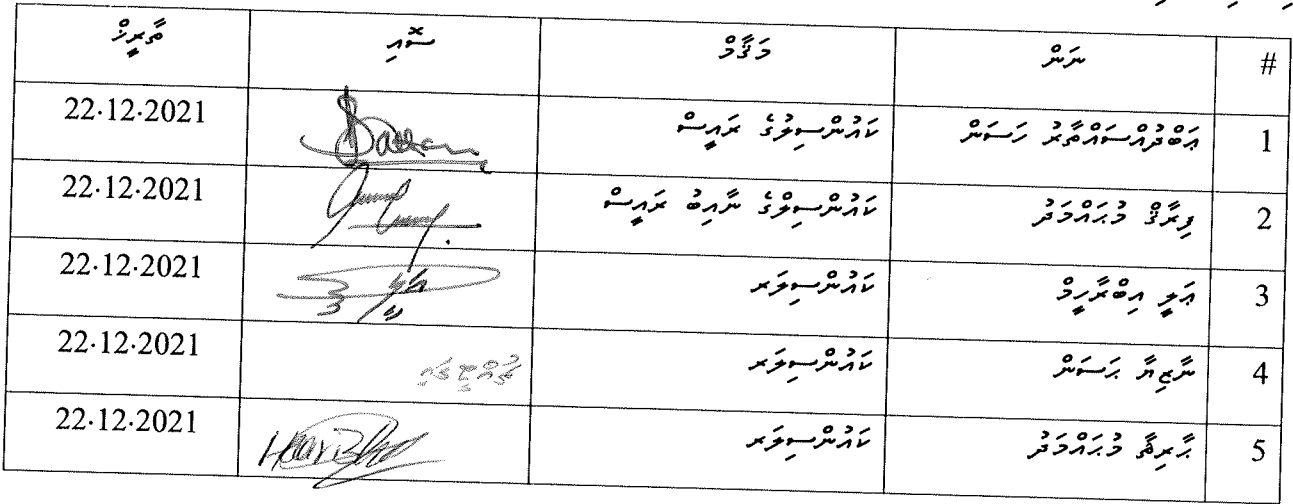 # ނަން މަޤާމް ސޮއި ތާރީޚް
1 ޢަބްދުއްސައްތާރު ހަސަން ކައުންސިލުގެ ރައީސް 22.12.2021
2 ފިރާޤް މުޙައްމަދު ކައުންސިލްގެ ނާއިބު ރައީސް 22.12.2021
3 ޢަލީ އިބްރާހީމް ކައުންސިލަރ 22.12.2021
4 ނާޒިޔާ ޙަސަން ކައުންސިލަރ ޗުއްޓީގައި 22.12.2021
5 ޙާރިޘާ މުޙައްމަދު ކައުންސިލަރ 22.12.2021